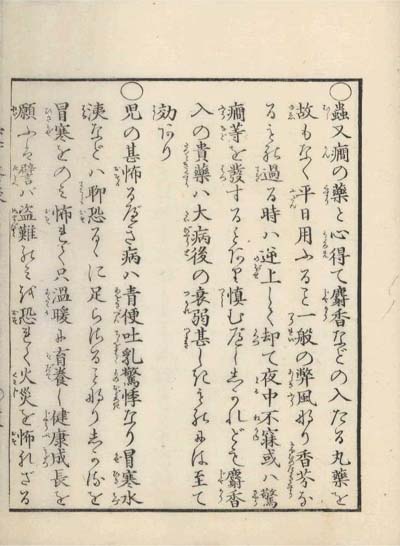 ○蟲又癇の藥と心得て麝香などの入たる丸藥を
故もなく平日用ふること一般の弊風なり香芬な
るもの過る時ハ逆上しく却て夜中不寐或ハ驚
癇等を發することあり慎むべししかれども麝香
入の貴藥ハ大病後の衰弱甚しきものには至て
効あり
○児の甚怖るべき病ハ青便吐乳驚悸なり冒寒水
洟などハ聊恐るゝに足らざることなりしかるを
冒寒をのミ怖れて只温暖に育養し健康成長を
願ふハ譬バ盗難のミを恐れて火災を怖れざる